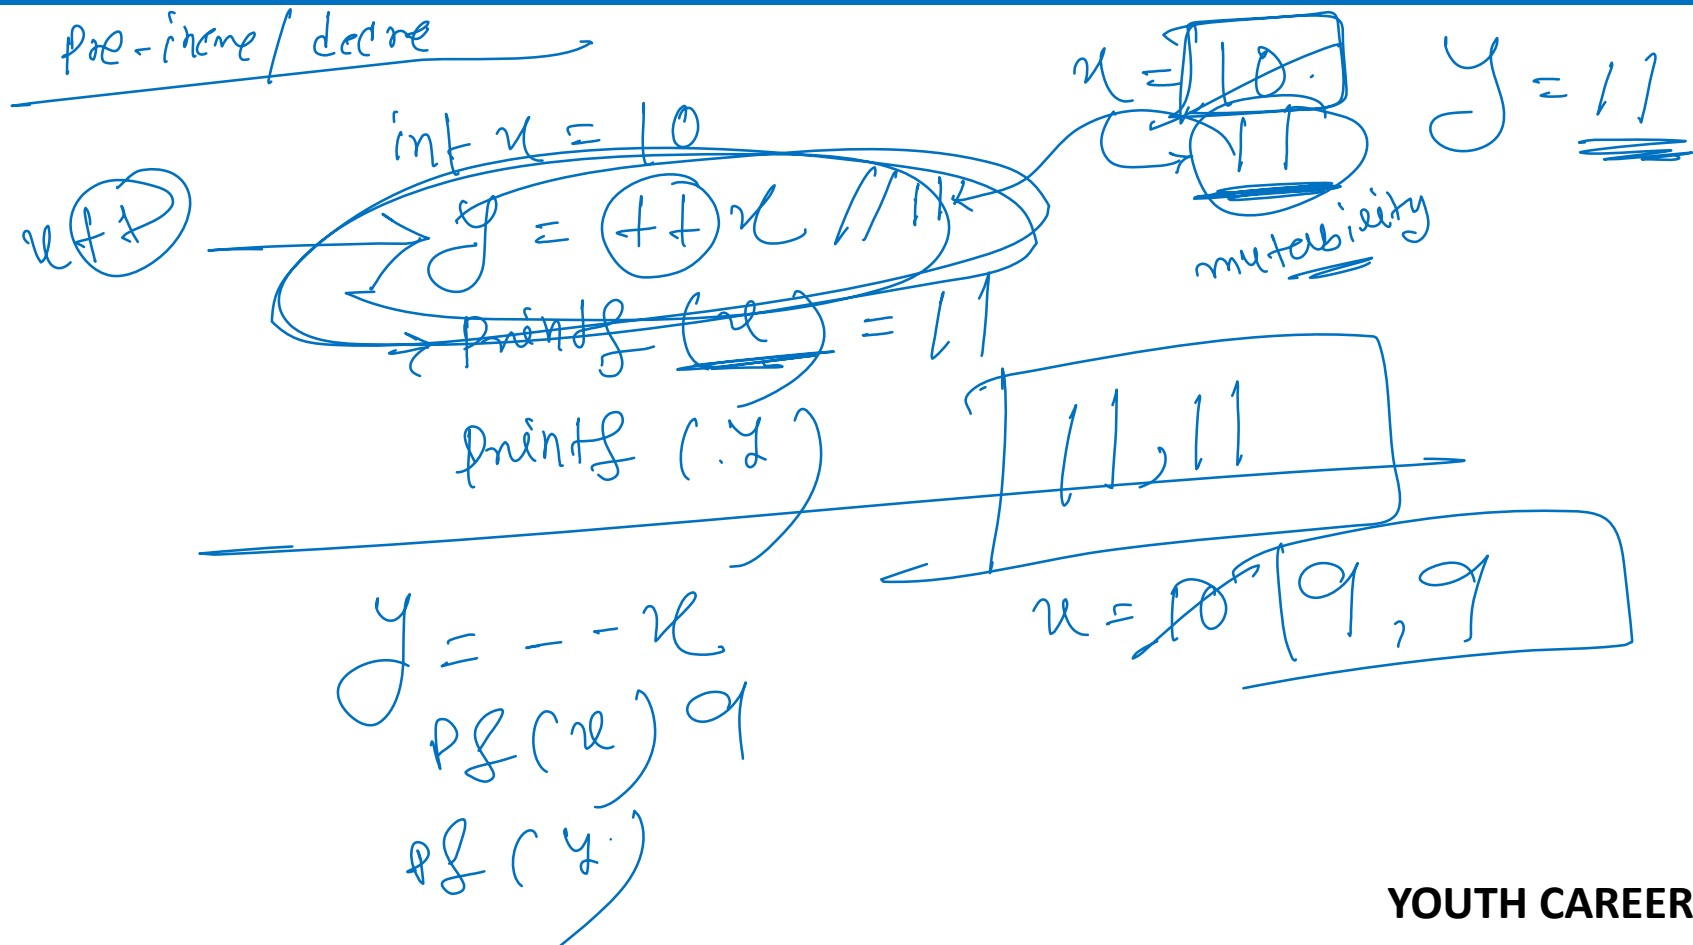 Pre-incre/decre
x = 10 11
y = 11
mutability
int x = 10
x++
y = ++x // 11
printf (x) = 11
printf (.y)
11, 11
y = --x
x = 10 9, 9
Pf (x) 9
Pf (y)
YOUTH CAREER